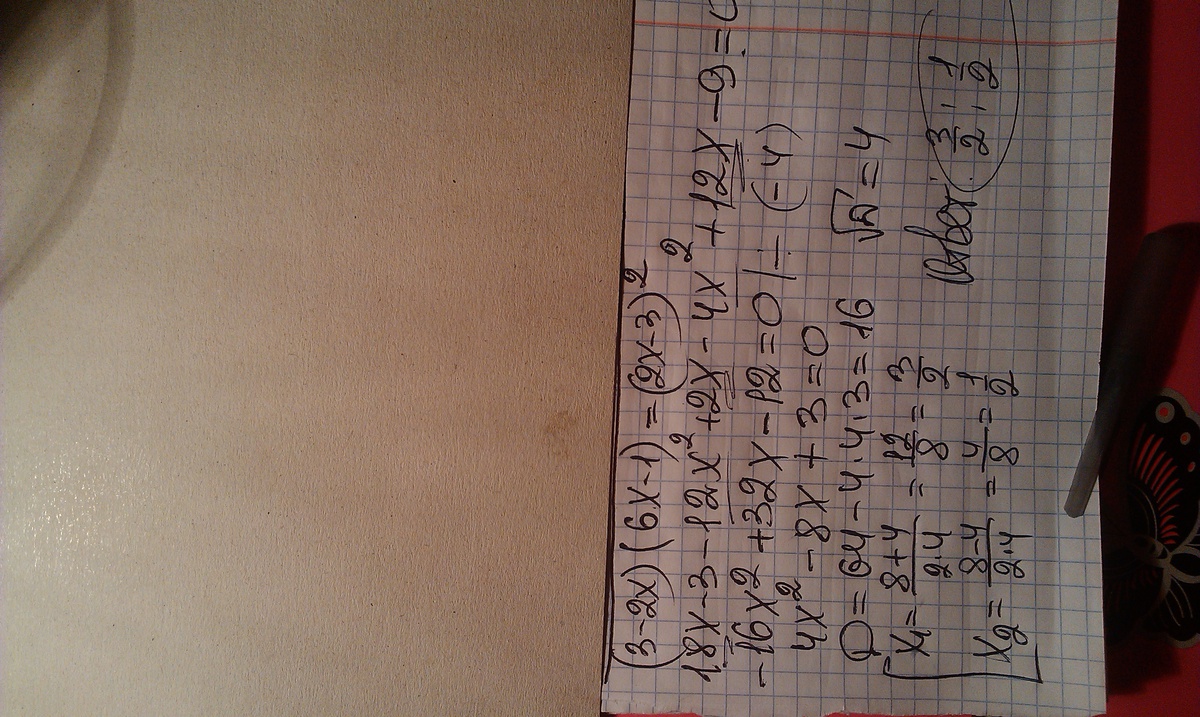 (3-2x)(6x-1)=(2x-3)²
18x-3-12x²+2x-4x²+12x-9=0
-16x²+32x-12=0 |÷(-4)
4x²-8x+3=0
D=64-4·4·3=16 √D=4
x₁=(8+4)/(2·4)=12/8=3/2
x₂=(8-4)/(2·4)=4/8=1/2
Ответ: 3/2; 1/2